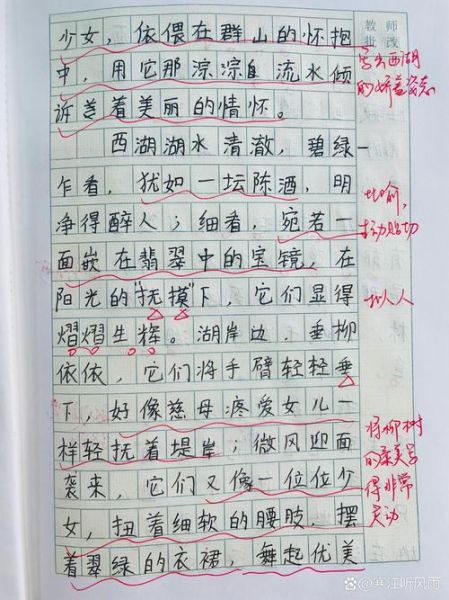 教师
批改
少女，依偎在群山的怀抱
中，用它那淙淙的流水倾
诉着美丽的情怀。
写出西湖
的娇羞姿态
西湖湖水清澈，碧绿
乍看，犹如一坛陈酒，明
净得醉人；细看，宛若一
比喻，
生动贴切
面嵌在翡翠中的宝镜，在
阳光的"抚摸"下，它们显得
拟人
熠熠生辉。湖岸边，垂柳
依依，它们将手臂轻轻垂
下，好像慈母疼爱女儿一
样轻抚着堤岸；微风迎面
袭来，它们又像一位位少
女，扭着细软的腰肢，摆
着翠绿的衣裙，舞起优美
将柳树
的柔美写
得非常
灵动
@寒江听风雨